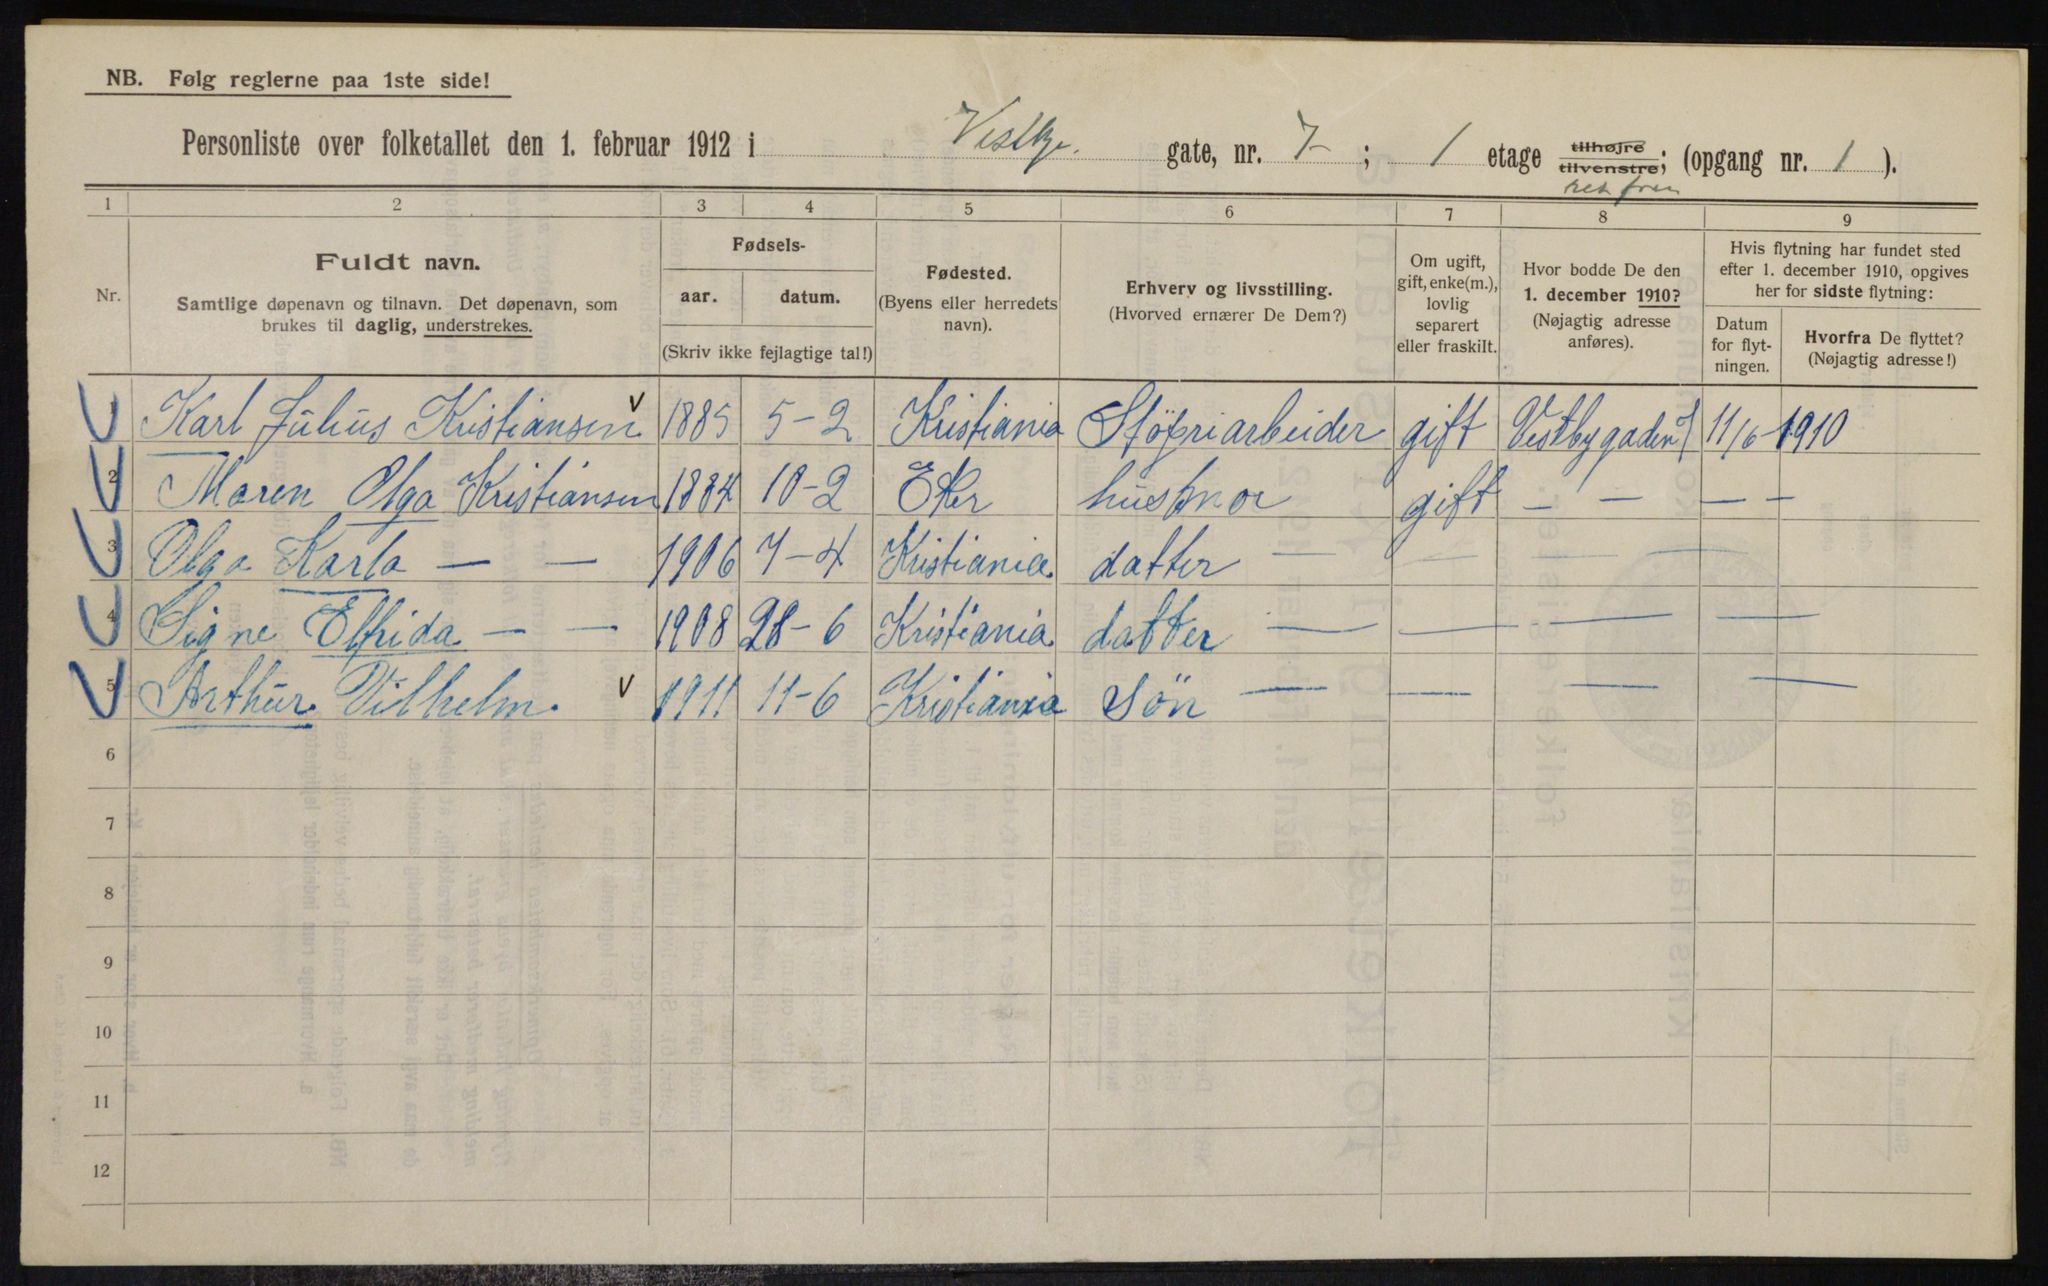 NB. Følg reglerne paa 1ste side!
Personliste over folketallet den 1. februar 1912 i Vestby. gate, nr. 7 ; 1 etage tilhøjre tilvenstre; (opgang nr. 1 ).
ret frem
1 2 3 4 5 6 7 8 9
Nr.
Fuldt navn.
Samtlige døpenavn og tilnavn. Det døpenavn, som
brukes til daglig, understrekes.
Fødsels-
aar. datum.
(Skriv ikke fejlagtige tal!)
Fødested.
(Byens eller herredets
navn).
Erhverv og livsstilling.
(Hvorved ernærer De Dem?)
Om ugift,
gift, enke(m.),
lovlig
separert
eller fraskilt.
Hvor bodde De den
1. december 1910?
(Nøjagtig adresse
anføres).
Hvis flytning har fundet sted
efter 1. december 1910, opgives
her for sidste flytning:
Datum
for flyt-
ningen.
Hvorfra De flyttet?
(Nøjagtig adresse!)
1 Karl Julius Kristiansen v 1885 5-2 Kristiania Støperiarbeider gift Vestbygaden 11/6-1910
2 Maren Olga Kristiansen 1884 10-2 Eker husmor gift — — — —
3 Olga Karla — — 1906 7-4 Kristiania datter — — — —
4 Signe Elfrida — — 1908 28-6 Kristiania datter — — — —
5 Arthur Vilhelm. v 1911 11-6 Kristiania søn — — — —
6
7
8
9
10
11
12